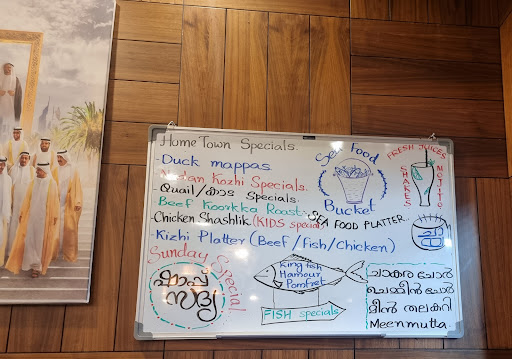 Home Town Specials.
- Duck mappas.
- Nadan Kozhi Specials.
- Quail/കാട Specials
- Beef Koorkka Roast.
- Chicken Shashlik. (KIDS special)
- Kizhi Platter (Beef/fish/Chicken)
Sea Food
Bucket
SEA FOOD PLATTER..
FRESH JUICES
SHAKES
MOJITO
Sunday Special.
ഷാപ്പ്
സദ്യ
King fish
Hamour
Pomfret
FISH specials
ചാകര ചോർ
ചെമ്മീൻ ചോർ
മീൻ തലകറി
Meenmutta.